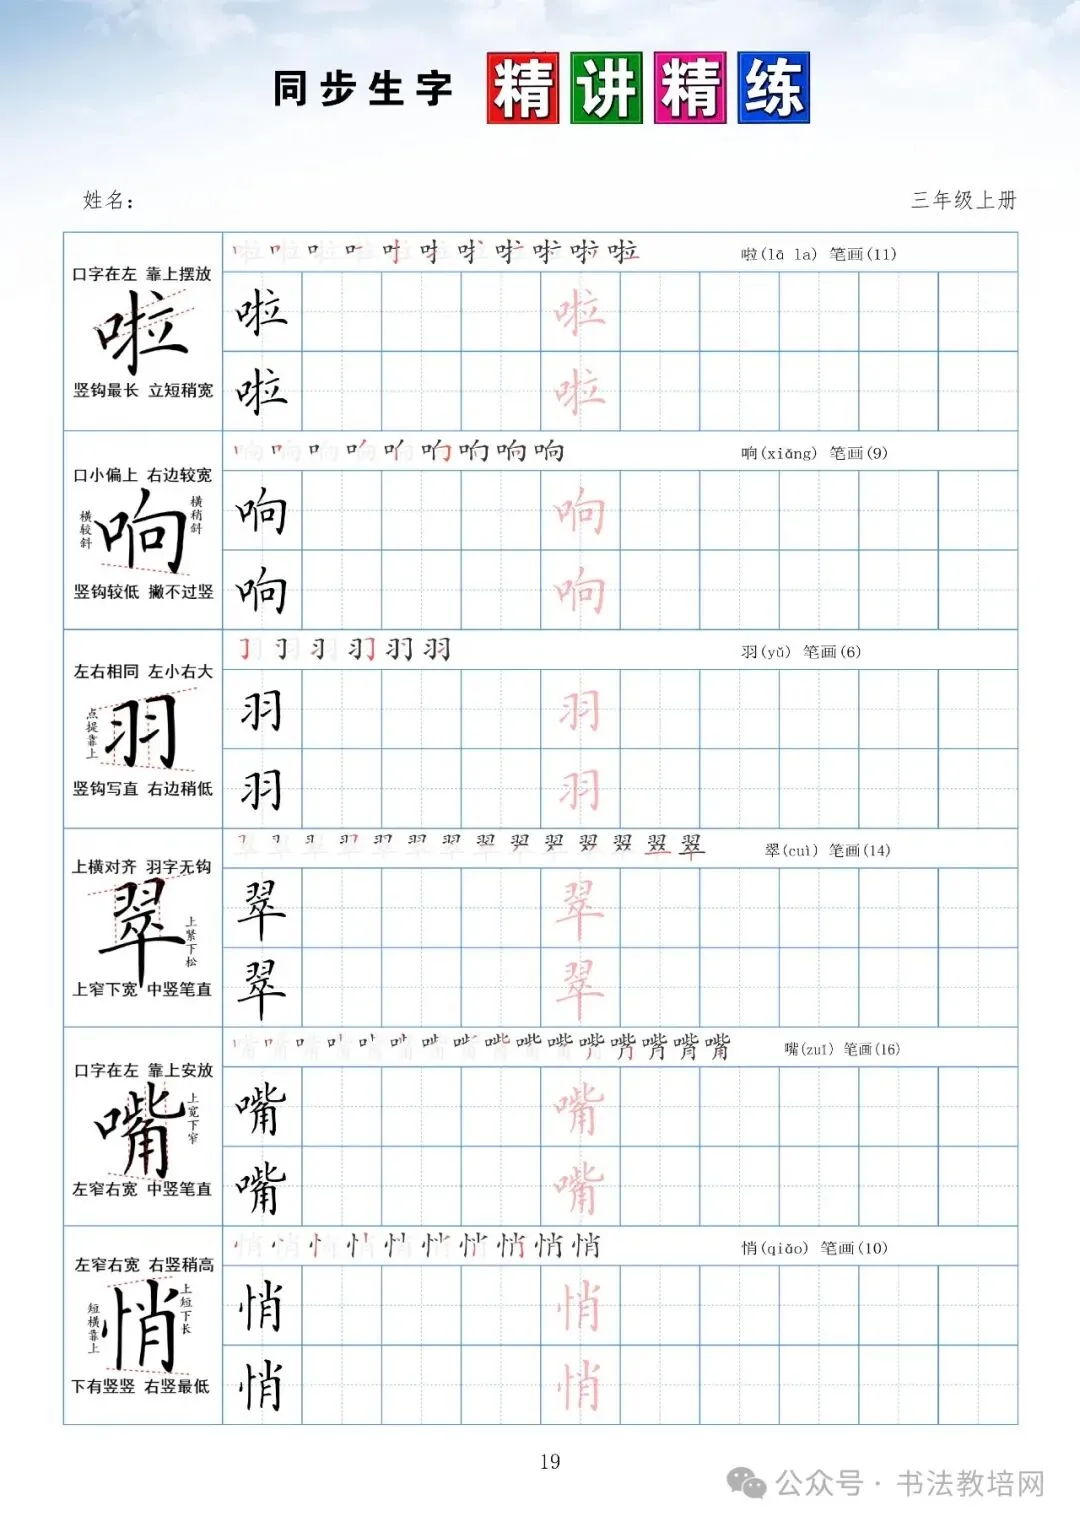 同步生字 精讲精练
姓名：
三年级上册
啦(lā la) 笔画(11)
口字在左 靠上摆放
啦
竖钩最长 立短稍宽
啦 啦
啦 啦
响(xiǎng) 笔画(9)
口小偏上 右边较宽
横较斜
响
横稍斜
竖钩较低 撇不过竖
响 响
响 响
羽(yǔ) 笔画(6)
左右相同 左小右大
点提靠上
羽
竖钩写直 右边稍低
羽 羽
羽 羽
翠(cuì) 笔画(14)
上横对齐 羽字无钩
翠
上紧下松
上窄下宽 中竖笔直
翠 翠
翠 翠
嘴(zuǐ) 笔画(16)
口字在左 靠上安放
嘴
上宽下窄
左窄右宽 中竖笔直
嘴 嘴
嘴 嘴
悄(qiǎo) 笔画(10)
左窄右宽 右竖稍高
短横靠上
悄
上短下长
下有竖竖 右竖最低
悄 悄
悄 悄
19
公众号·书法教培网